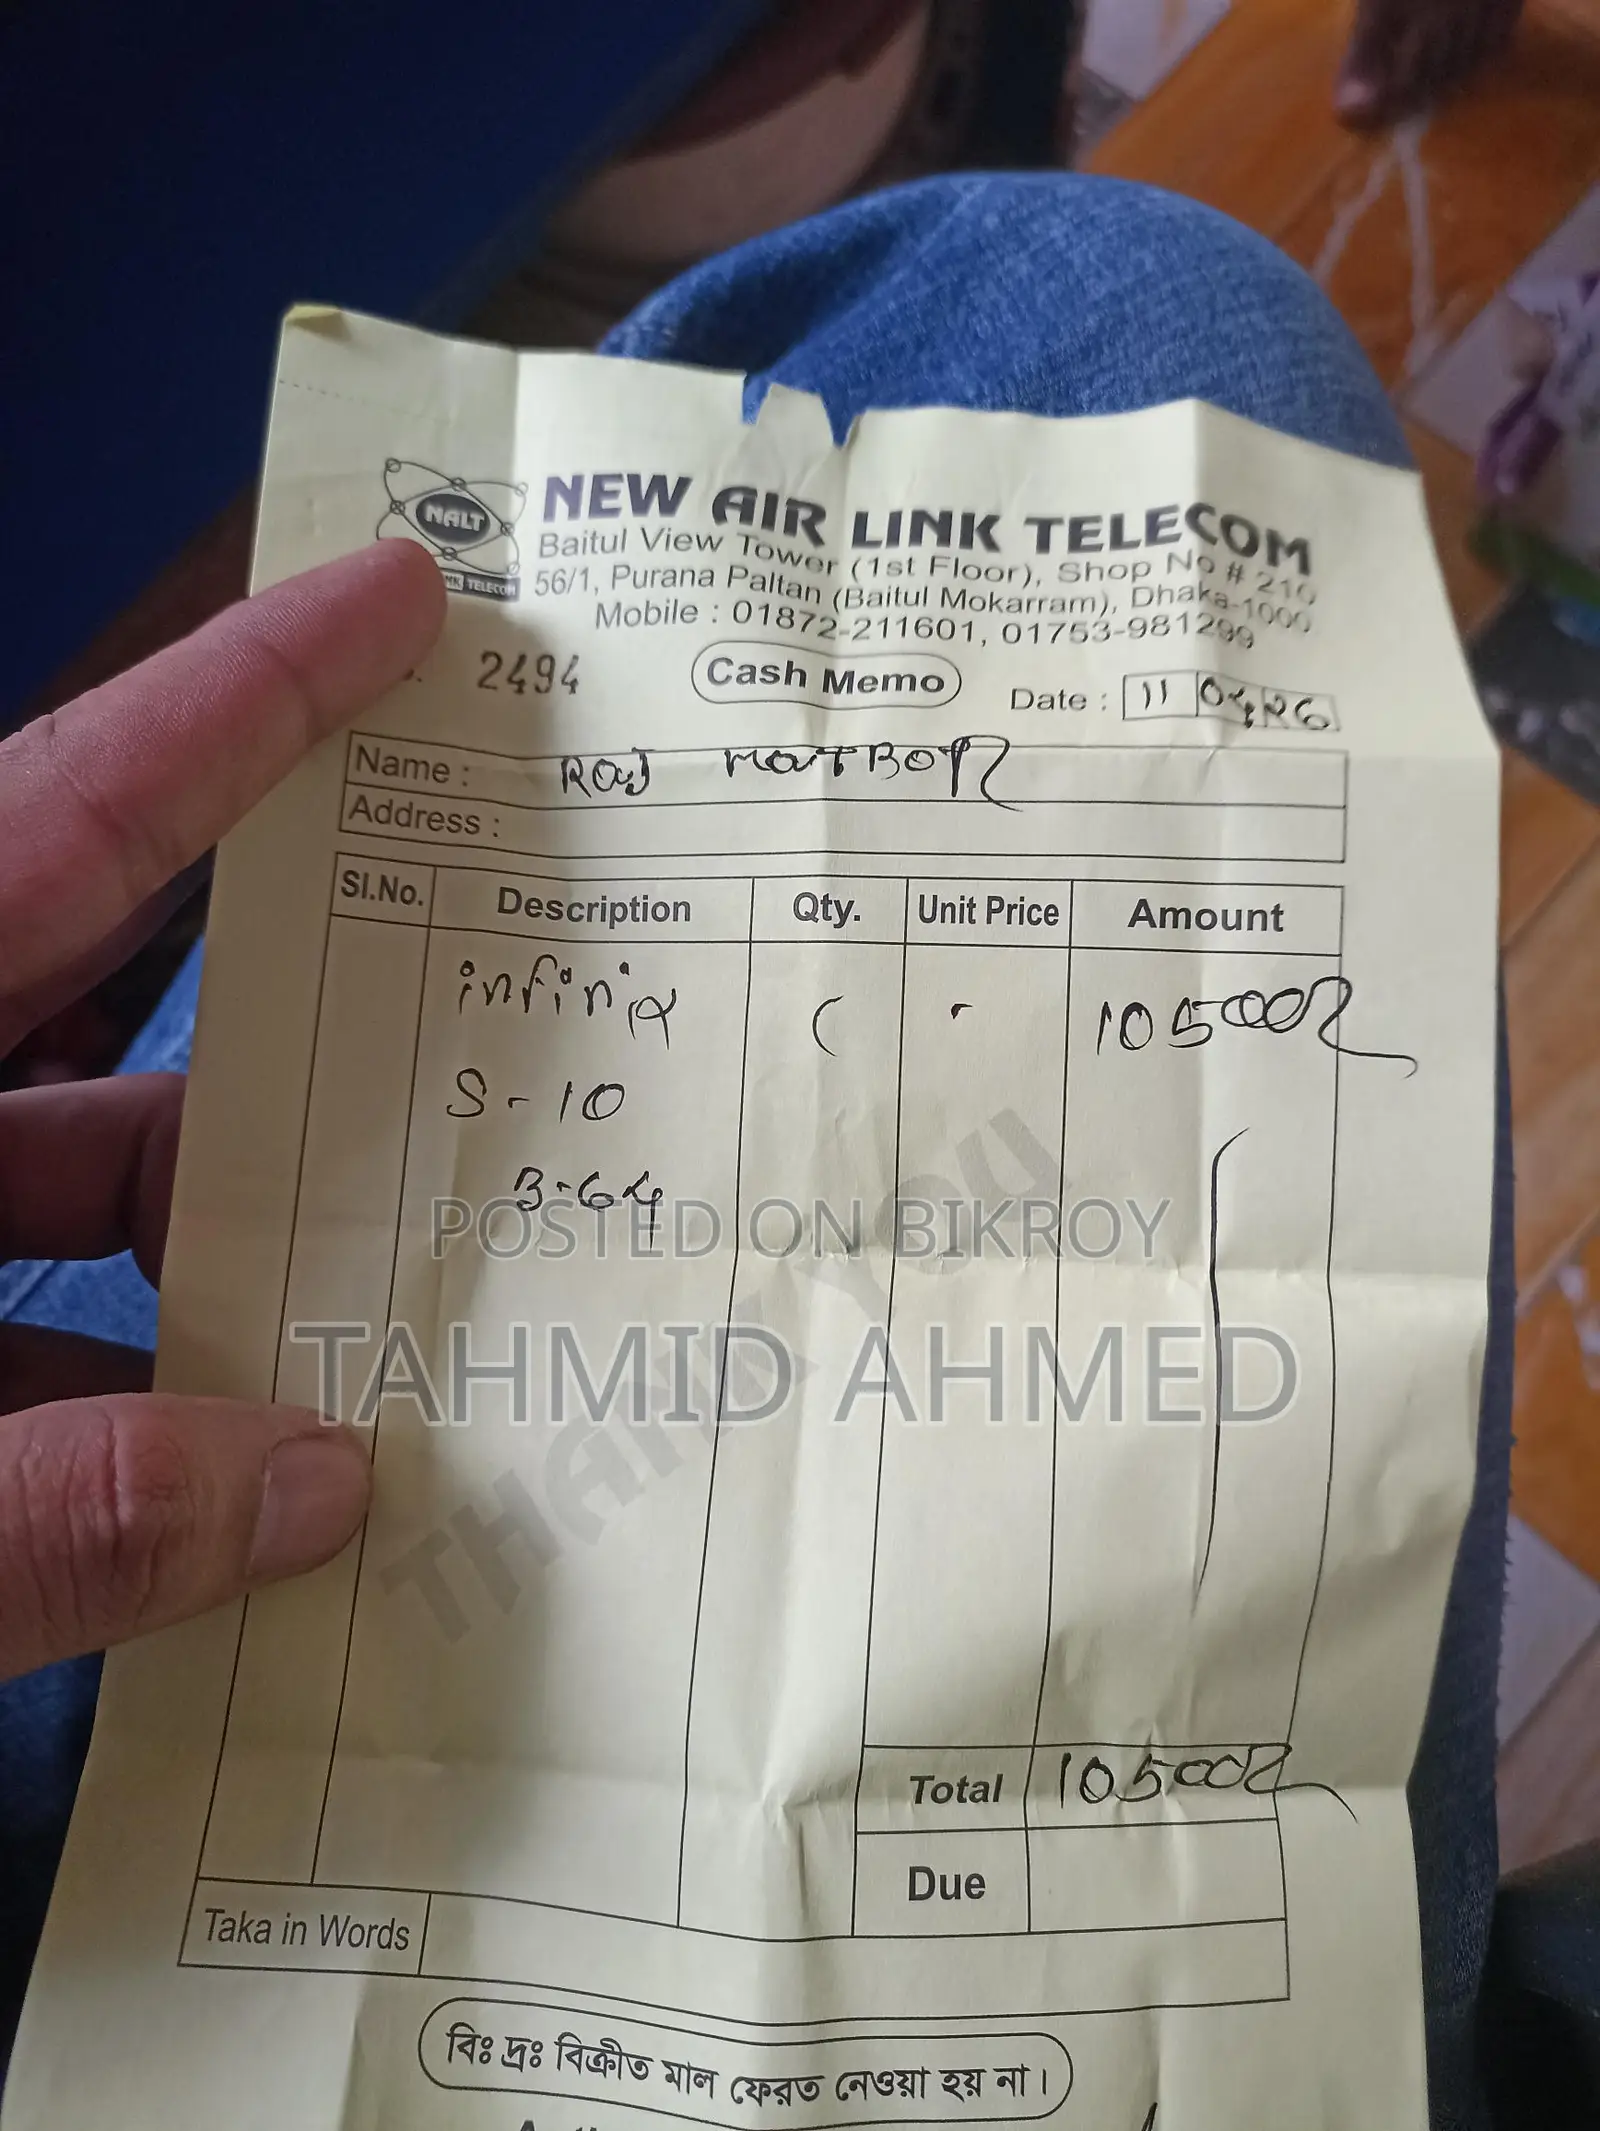 NALT
NK TELECOM
NEW AIR LINK TELECOM
Baitul View Tower (1st Floor), Shop No # 210
56/1, Purana Paltan (Baitul Mokarram), Dhaka-1000
Mobile : 01872-211601, 01753-981299
2494 Cash Memo Date : 11 04 26
Name : RaJ
Address :
Sl.No. Description Qty. Unit Price Amount
infinix 10500/-
S-10
3-64
THANK YOU
POSTED ON BIKROY
TAHMID AHMED
Total 10500/-
Due
Taka in Words
বিঃ দ্রঃ বিক্রীত মাল ফেরত নেওয়া হয় না।